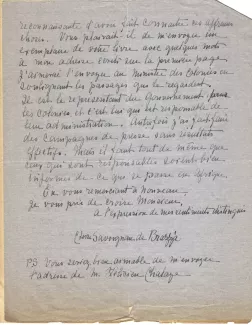 reconnaissante d'avoir fait connaître ces affreuses
choses. Vous plairait-il de m'envoyer un
exemplaire de votre livre avec quelques mots
à mon adresse écrits sur la première page
J'aimerais l'envoyer au Ministre des Colonies en
soulignant les passages qui le regardent.
Il est le représentant du Gouvernement pour
les Colonies et c'est lui qui est responsable de
leur administration. Autrefois j'ai fait
des campagnes de presse sans résultats
effectifs. Mais il faut tout de même que
ceux qui sont responsables soient bien
informés de ce qui se passe en Afrique.
En vous remerciant à nouveau
je vous prie de croire Monsieur,
à l'expression de mes sentiments distingués
Savorgnan de Brazza
PS Vous seriez bien aimable de m'envoyer
l'adresse de M. Félicien Challaye